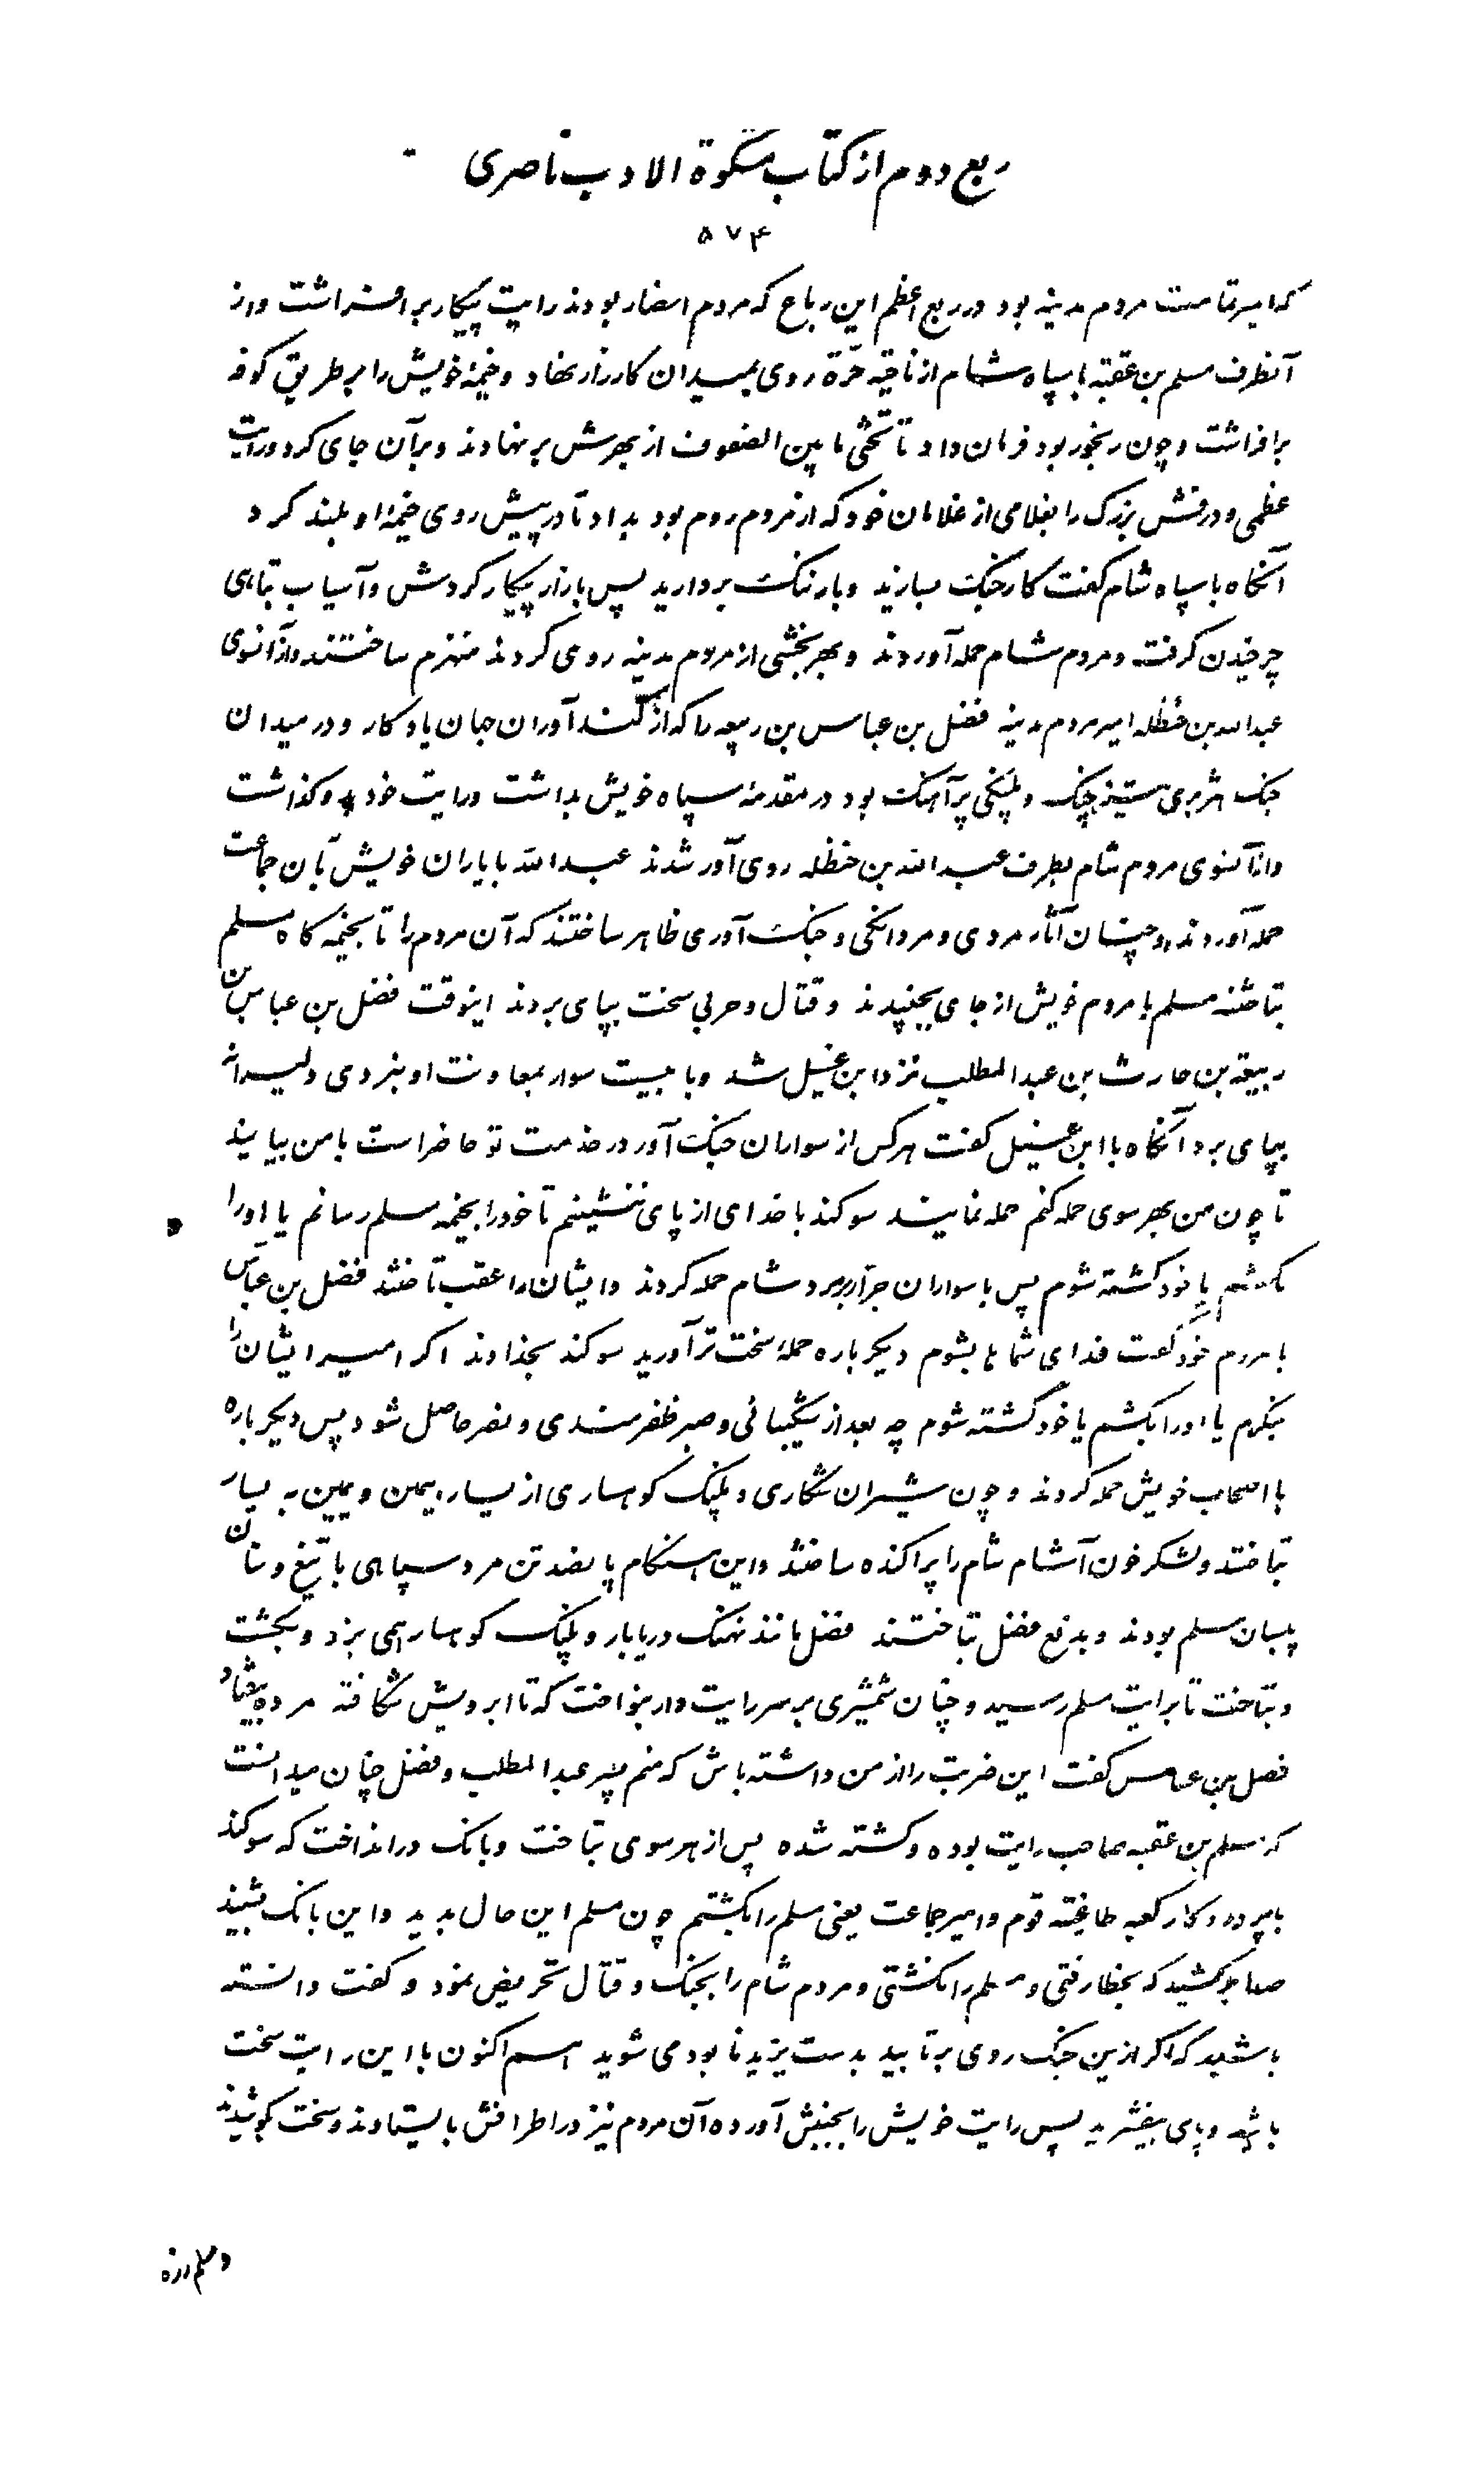 ربع دوم از کتاب مشکوة الادب ناصری
۵۷۴
که امیر تمامت مردم مدینه بود در ربع اعظم این رباع که مردم انصار بودند رایت پیکار برافراشت و از
آنطرف مسلم بن عقبة با سپاه شام از ناحیه حرّة روی بمیدان کارزار نهاد و خیمهٔ خویش را بر طریق کوفه
برافراشت و چون رنجور بود فرمان داد تا تختی ما بین الصفوف از بهرش بر نهادند و بر آن جای کرد و رایت
عظمی و درفش بزرک را بغلامی از غلامان خود که از مردم روم بود بداد تا در پیش روی خیمهٔ او بلند کرد
آنکاه با سپاه شام کفت کار جنک بسازید و بار ننک بردارید پس بازار پیکار کردش و آسیاب تباهی
چرخیدن کرفت و مردم شام حمله آوردند و بهر بخشی از مردم مدینه روی کردند منهزم ساختند و از آنسوی
عبدالله بن حنظله امیر مردم مدینه فضل بن عباس بن ربیعه را که از کندآوران جهان یادکار و در میدان
جنک هژبری ستیز چنک و پلنکی پرآهنک بود در مقدمهٔ سپاه خویش بداشت و رایت خود بدو کذاشت
و از آنسوی مردم شام بطرف عبدالله بن حنظله روی آور شدند عبدالله با یاران خویش بآن جماعت
حمله آوردند و چنان آثار مردی و مردانکی و جنک آوری ظاهر ساختند که آن مردم را تا بخیمه کاه مسلم
بتاختند مسلم با مردم خویش از جای بجنبیدند و قتال و حربی سخت بپای بردند اینوقت فضل بن عباس بن
ربیعة بن حارث بن عبدالمطلب نزد ابن غسیل شد و با بیست سوار بمعاونت او نبردی دلیرانه
بپای برد آنکاه با ابن غسیل کفت هر کس از سواران جنک آور در خدمت تو حاضر است با من بیایند
تا چون من بهر سوی حمله کنم حمله نمایند سوکند با خدای از پای ننشینم تا خود را بخیمه مسلم رسانم یا او را
بکشم یا خود کشته شوم پس با سواران جرّار بر مرد شام حمله کردند و ایشان را عقب تاختند فضل بن عباس
با مردم خود کفت فدای شما بشوم دیکرباره حملهٔ سخت تر آورید سوکند بخداوند اکر امیر ایشان را
بنکرم یا او را بکشم یا خود کشته شوم چه بعد از شکیبائی و صبر ظفرمندی و نصر حاصل شود پس دیکرباره
با اصحاب خویش حمله کردند و چون شیران شکاری و پلنک کوهساری از یسار بیمین و یمین به یسار
بتاختند و لشکر خون آشام شام را پراکنده ساختند و این هنکام پانصد تن مرد سپاهی با تیغ و سنان
پاسبان مسلم بودند و بدفع فضل بتاختند فضل مانند نهنک دریابار و پلنک کوهسار همی بزد و بکشت
و بتاخت تا برایت مسلم رسید و چنان شمشیری بر سر رایت دار بنواخت که تا ابرویش شکافته مرده بیفتاد
فضل بن عباس کفت این ضربت را از من داشته باش که منم پسر عبدالمطلب و فضل چنان میدانست
که مسلم بن عقبه صاحب رایت بوده و کشته شده پس از هر سوی بتاخت و بانک در انداخت که سوکند
با پروردکار کعبه طاغیه قوم و امیر جماعت یعنی مسلم را بکشتم چون مسلم این حال بدید و این بانک بشنید
صدا برکشید که بخطا رفتی و مسلم را نکشتی و مردم شام را بجنک و قتال تحریض نمود و کفت دانسته
باشید که اکر ازین جنک روی برتابید بدست یزید نابود می شوید هم اکنون با این رایت سخت
باشید و پای بیفشرید پس رایت خویش را بجنبش آورده آن مردم نیز در اطرافش بایستادند و سخت کوشیدند
و مسلم زره